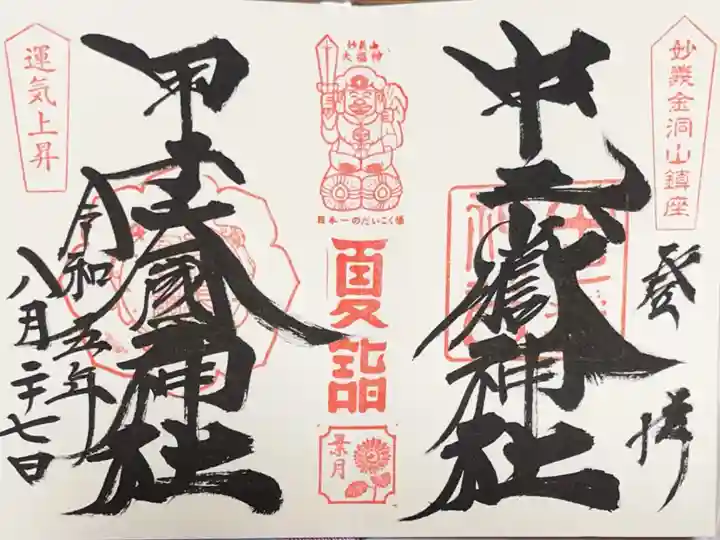 妙義金洞山鎮座
登拝
中之嶽神社
妙義山
大福神
日本一のだいこく様
夏詣
葉月
甲子大國神社
運気上昇
令和五年
八月二十七日